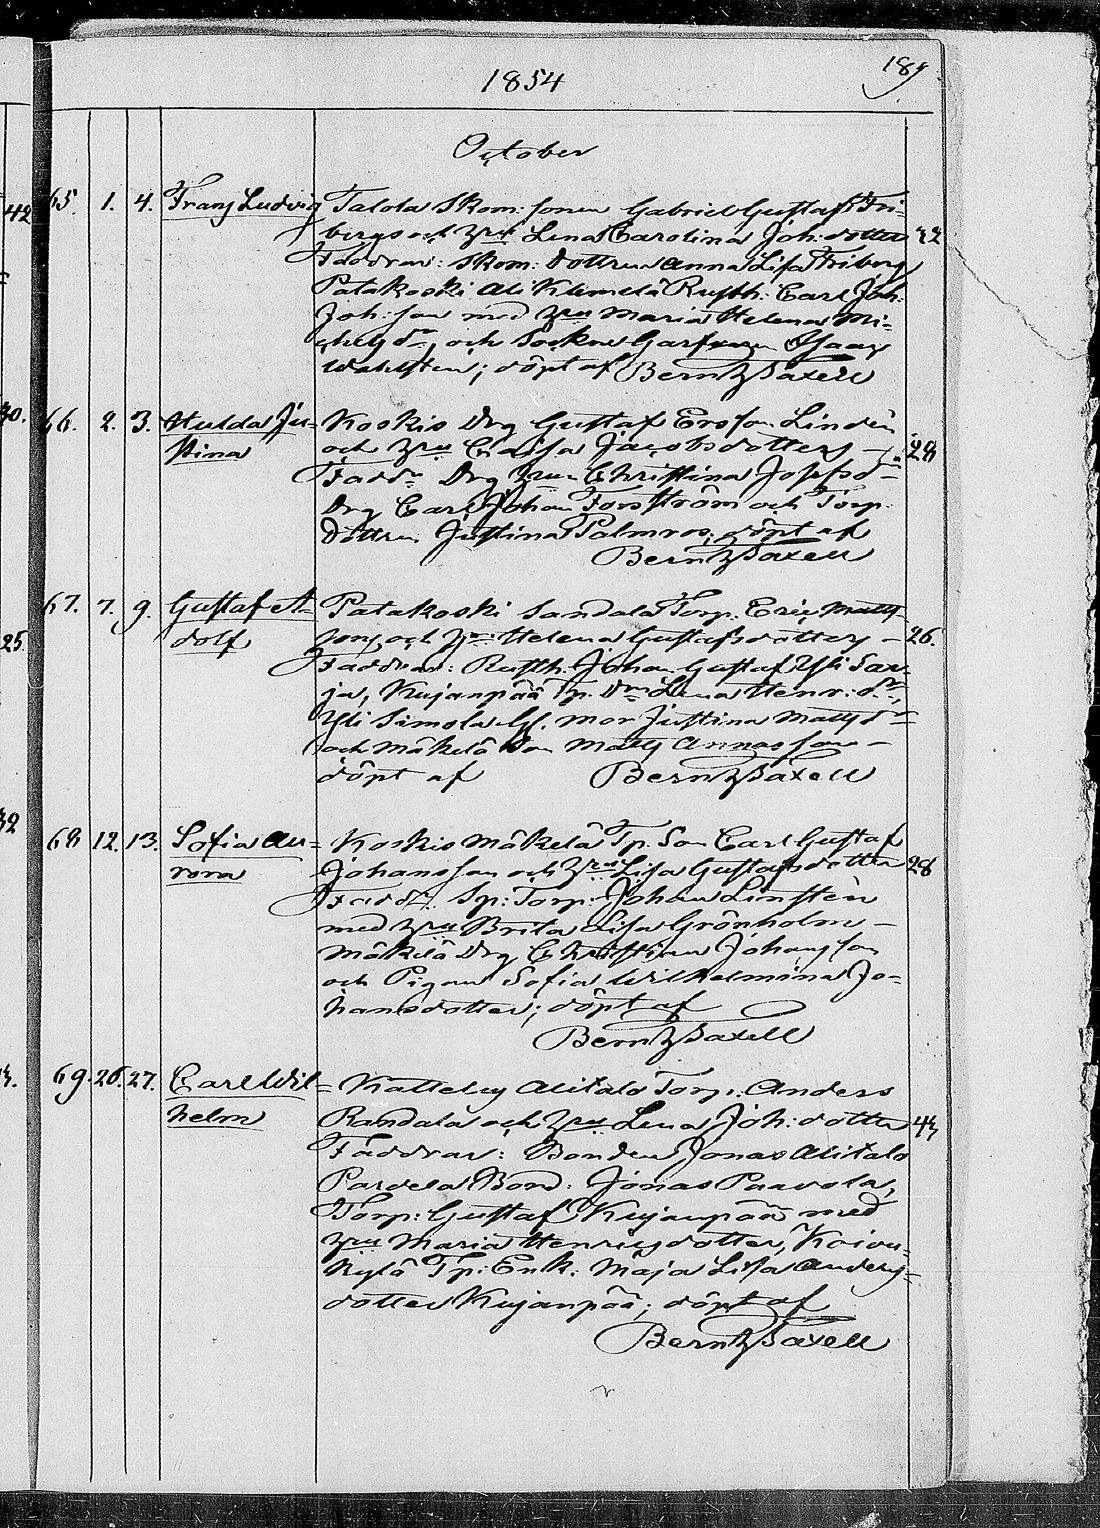 189
1854
October
65. 1. 4. Franz Ludvig Talola Skom: sonen Gabriel Gustafs Fri-
bergs och hru Lena Carolina Joh: dotter 32
Faddrar: Skom: dottren Anna Lisa Friberg
Patakoski Ali Klemelä Rusth: Carl Joh:
Joh: son med hru Maria Helena Mi-
chelsdr och Sockne Garfvaren Isaac
Wahlsten; döpt af Bernh Saxell
66. 2. 3. Hulda Ju- Koskis Drg Gustaf Ersson Linden
stina och hru Caisa Jacobsdotters 28
Faddr Drg hrun Christina Josefsd
Drg Carl Johan Forsström och Torp.
dottren Justina Palmros; döpt af
Bernh Saxell
67. 7. 9. Gustaf A- Patakoski Sandala Torp. Eric Matts
dolf sons och hru Helena Gustafsdotters 26.
Faddrar: Rusth. Johan Gustaf Yli Sar-
ja, Kujanpää Tp. Drn Lena Henr: dr,
Yli Simola Gl. mor Justina Mattsdr
och Mäkelä Son Matts Annasson
döpt af Bernh Saxell
68 12. 13. Sofia Au- Koskis Mäkelä Tp. Son Carl Gustaf
rora Johansson och hru Lisa Gustafsdotter 28
Faddr. Sp: Torp. Johan Linsten
med hru Brita Lisa Grönholm
Mäkelä Drg Christian Johansson
och Pigan Sofia Wilhelmina Jo-
hansdotter; döpt af
Bernh Saxell
69. 26. 27. Carl Wil- Kattelus Alitalo Torp: Anders
helm Randala och hru Lena Joh: dotter 43
Faddrar: Bonden Jonas Alitalo
Parvela Bond: Jonas Paavola,
Torp: Gustaf Kujanpää med
hru Maria Henricsdotter, Koivu-
kylä Tp: Enk: Maja Lisa Anders-
dotter Kujanpää; döpt af
Bernh Saxell